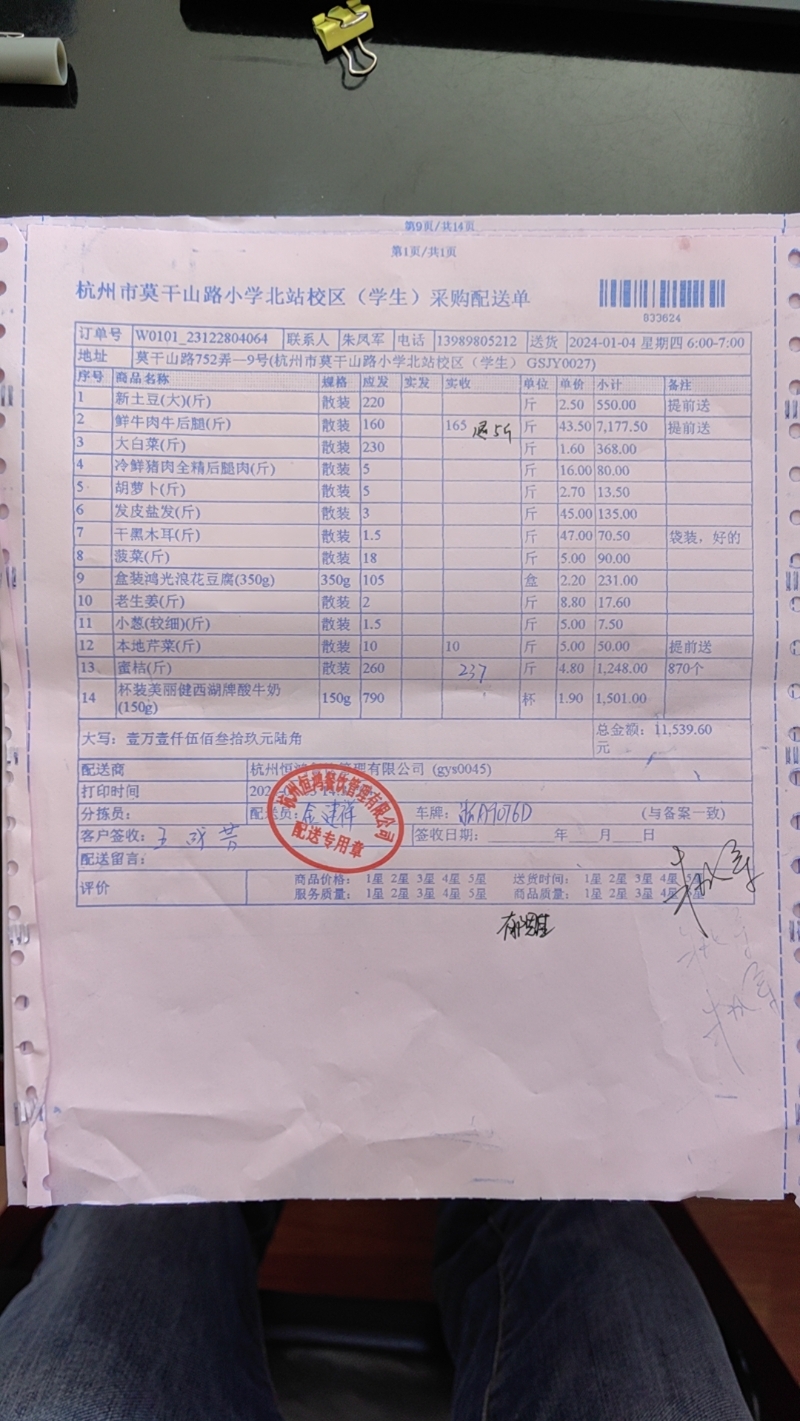 第9页/共14页
第1页/共1页
杭州市莫干山路小学北站校区（学生）采购配送单
833624
订单号 W0101_23122804064 联系人 朱凤军 电话 13989805212 送货 2024-01-04 星期四 6:00-7:00
地址 莫干山路752弄一9号(杭州市莫干山路小学北站校区（学生） GSJY0027)
序号 商品名称 规格 应发 实发 实收 单位 单价 小计 备注
1 新土豆(大)(斤) 散装 220 斤 2.50 550.00 提前送
2 鲜牛肉牛后腿(斤) 散装 160 165 退5斤 斤 43.50 7,177.50 提前送
3 大白菜(斤) 散装 230 斤 1.60 368.00
4 冷鲜猪肉全精后腿肉(斤) 散装 5 斤 16.00 80.00
5 胡萝卜(斤) 散装 5 斤 2.70 13.50
6 发皮盐发(斤) 散装 3 斤 45.00 135.00
7 干黑木耳(斤) 散装 1.5 斤 47.00 70.50 袋装，好的
8 菠菜(斤) 散装 18 斤 5.00 90.00
9 盒装鸿光浪花豆腐(350g) 350g 105 盒 2.20 231.00
10 老生姜(斤) 散装 2 斤 8.80 17.60
11 小葱(较细)(斤) 散装 1.5 斤 5.00 7.50
12 本地芹菜(斤) 散装 10 10 斤 5.00 50.00 提前送
13 蜜桔(斤) 散装 260 237 斤 4.80 1,248.00 870个
14 杯装美丽健西湖牌酸牛奶(150g) 150g 790 杯 1.90 1,501.00
大写：壹万壹仟伍佰叁拾玖元陆角 总金额：11,539.60元
配送商 杭州恒鸿餐饮管理有限公司 (gys0045)
打印时间
分拣员： 配送员：金建祥 车牌：浙A9076D (与备案一致)
客户签收： 签收日期：____年__月__日
配送留言：
评价 商品价格： 1星 2星 3星 4星 5星 送货时间： 1星 2星 3星 4星 5星
服务质量： 1星 2星 3星 4星 5星 商品质量： 1星 2星 3星 4星 5星
杭州恒鸿餐饮管理有限公司
配送专用章